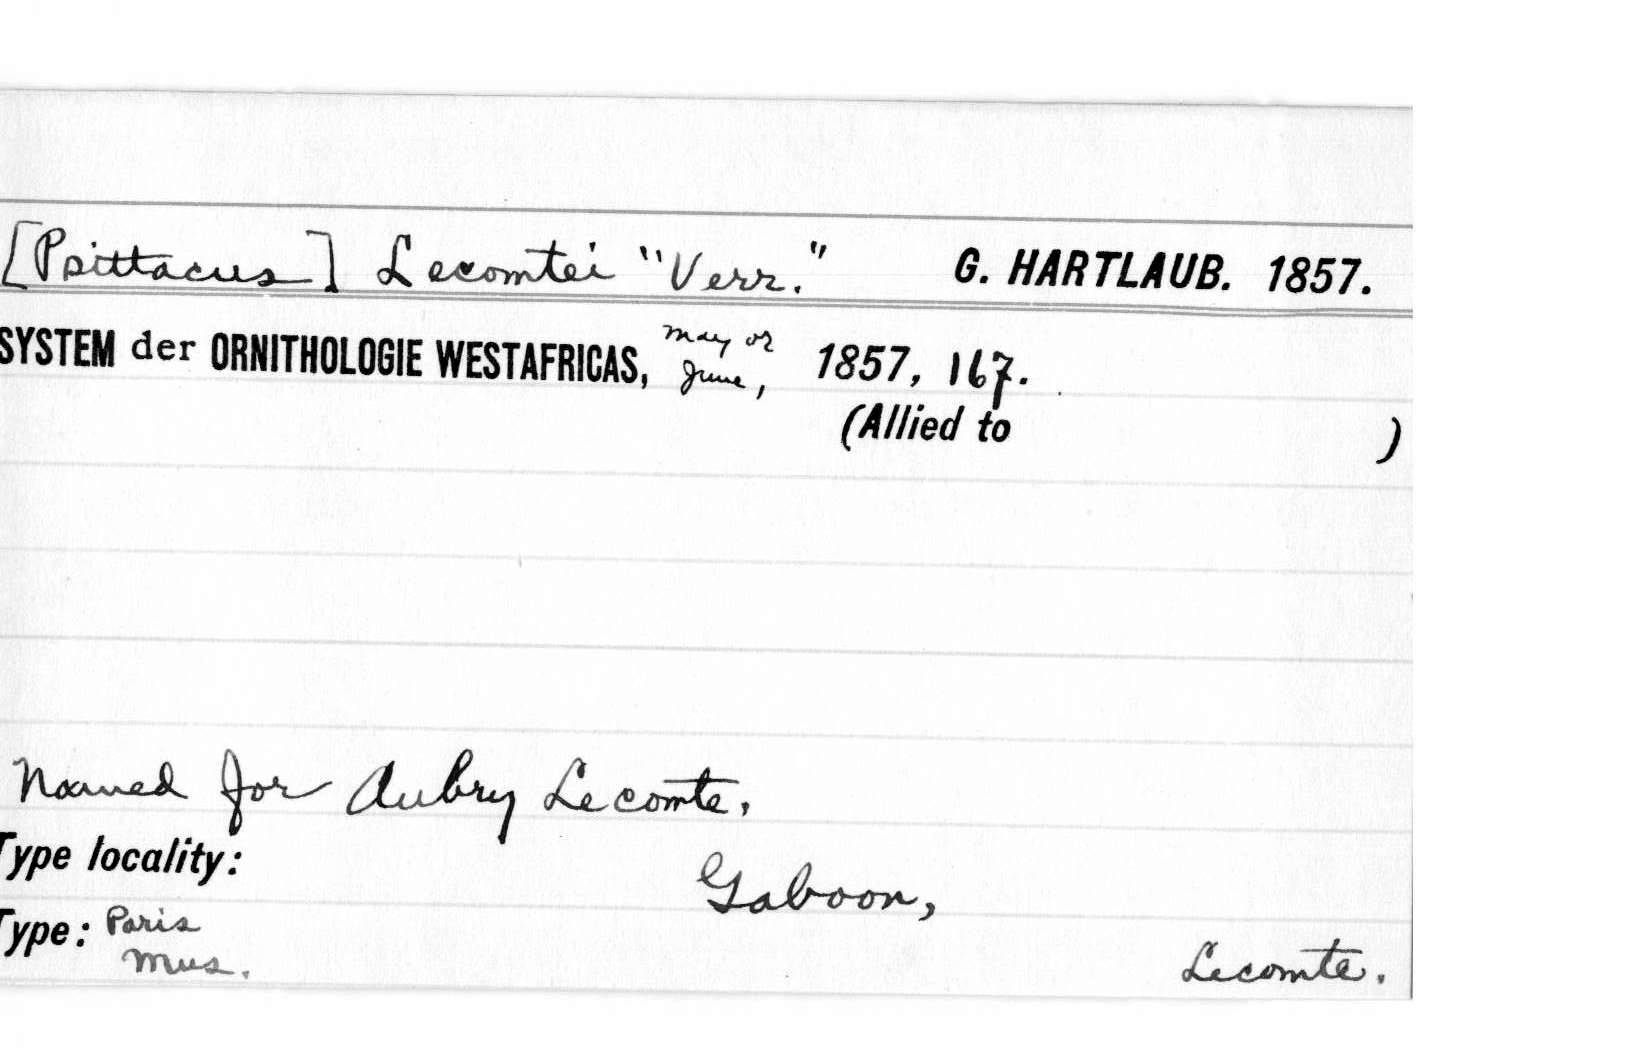 [Psittacus] Lecomtei "Verr." G. HARTLAUB. 1857.
SYSTEM der ORNITHOLOGIE WESTAFRICAS, May or June, 1857, 167.
(Allied to )
Named for Aubry Lecomte.
Type locality: Gaboon,
Type: Paris Mus. Lecomte.